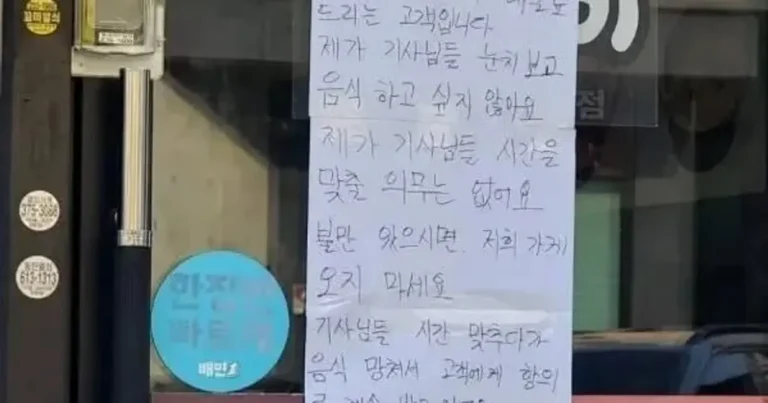 드리는 고객입니다
제가 기사님들 눈치 보고
음식 하고 싶지 않아요
제가 기사님들 시간을
맞출 의무는 없어요
불만 있으시면 저희 가게
오지 마세요
기사님들 시간 맞추다가
음식 망쳐서 고객에게 항의
점
375-3088
613-1313
배민